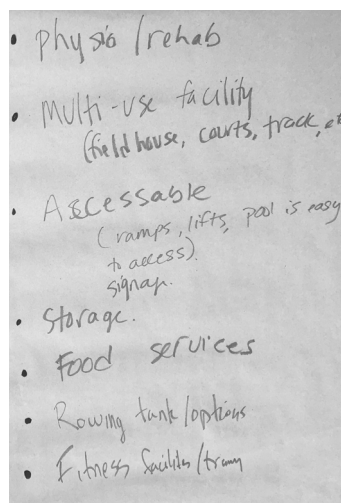 • physio/rehab
• Multi-use facility
(field house, courts, track, et
• Accessable
(ramps, lifts, pool is easy
to access).
signage.
• Storage.
• Food services
• Rowing tank/options
• Fitness facilities/